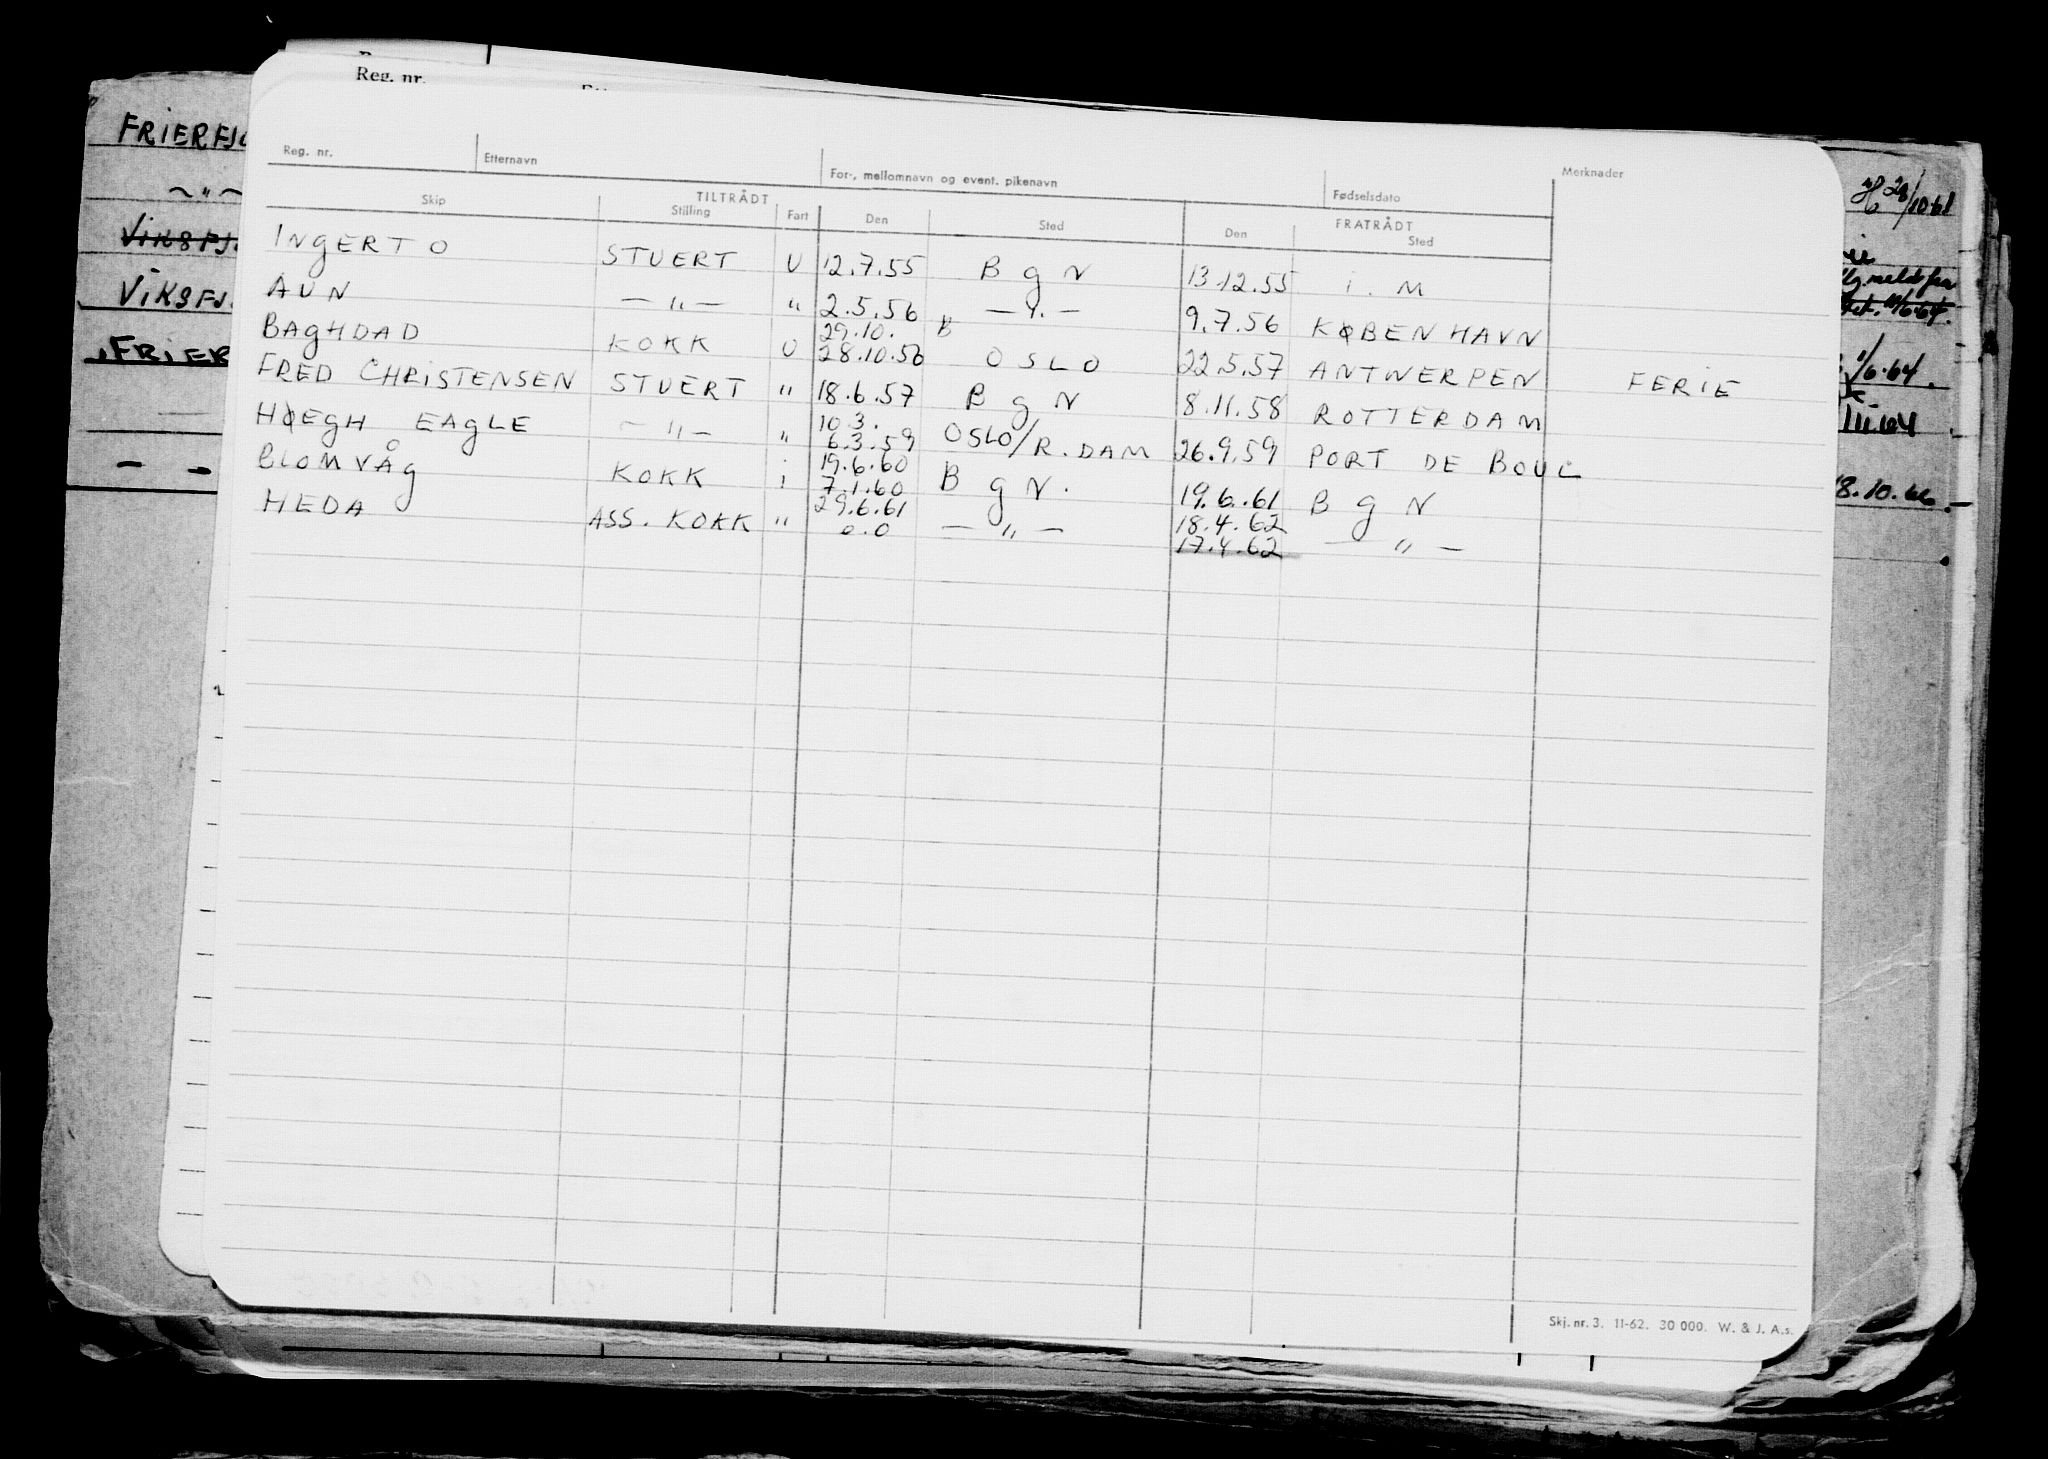 Reg. nr.
FRIERFJO
Reg. nr. Etternavn For-, mellomnavn og event. pikenavn Fødselsdato Merknader
TILTRÅDT FRATRÅDT
Skip Stilling Fart Den Sted Den Sted
INGERTO STUERT U 12.7.55 BgN 13.12.55 i. M
AUN — " — " 2.5.56 — " — 9.7.56 KØBENHAVN
29.10.
BAGHDAD KOKK U 28.10.56 OSLO 22.5.57 ANTWERPEN FERIE
FRED CHRISTENSEN STUERT " 18.6.57 BgN 8.11.58 ROTTERDAM
10.3.
HØEGH EAGLE — " — " 6.3.59 OSLO/R.DAM 26.9.59 PORT DE BOUC
19.6.60
BLOMVÅG KOKK i 7.1.60 BgN. 19.6.61 BgN
29.6.61 18.4.62
HEDA ASS. KOKK " 0.0 — " — 17.4.62 — " —
~ " ~
VIKSFJ.
VIKSFJ.
FRIER
— -
28/10-61
1/6-64.
18.10.66.
Skj. nr. 3. 11-62. 30 000. W. & J. A.s.